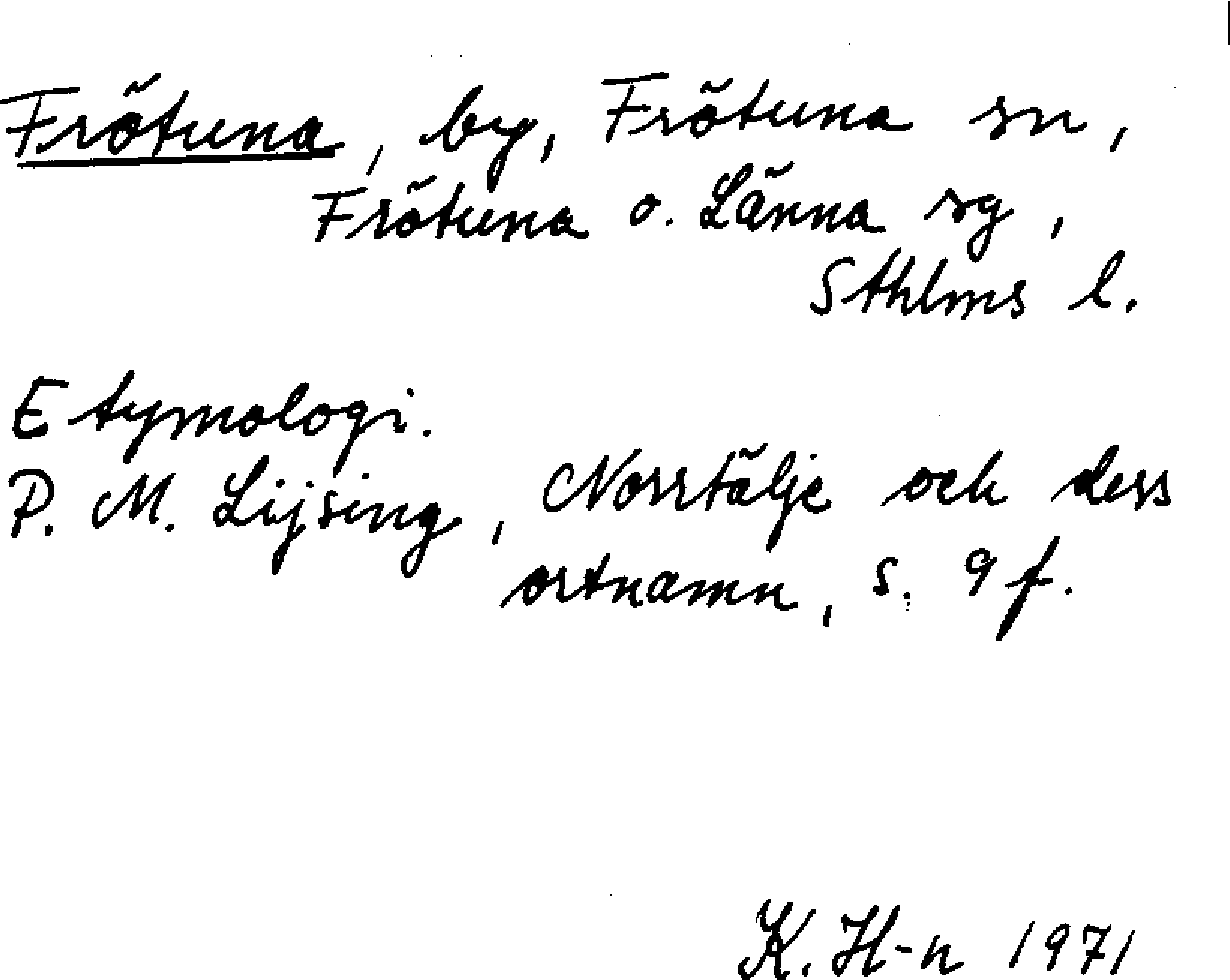 Frötuna, by, Frötuna sn,
Frötuna o. Länna sg,
Sthlms l.
Etymologi.
P. M. Lijsing, Norrtälje och dess
ortnamn, s. 9 f.
K. H-n 1971